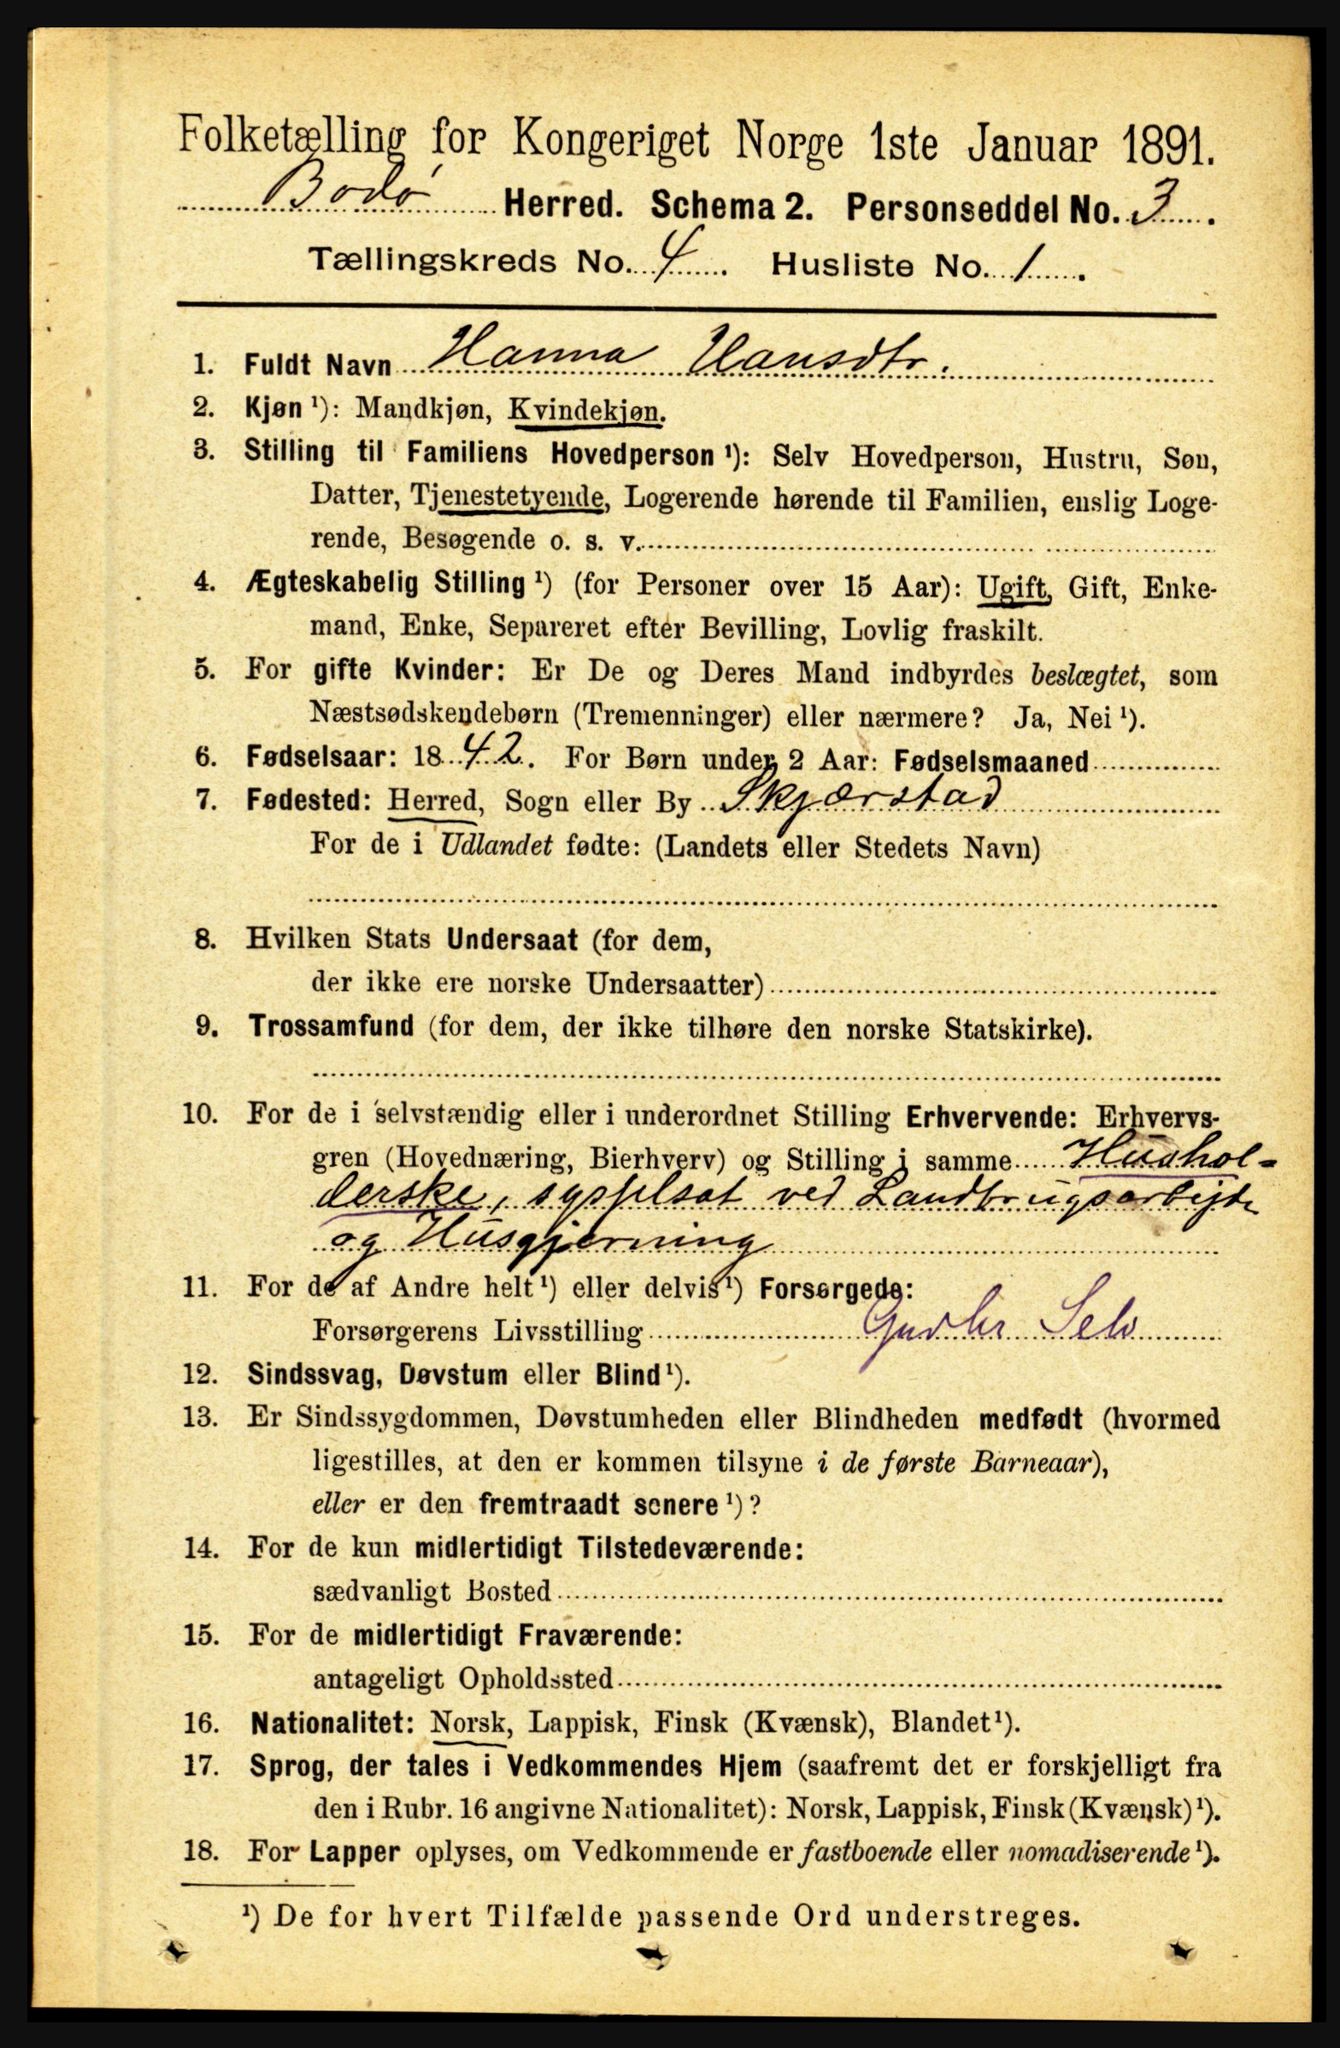 Folketælling for Kongeriget Norge 1ste Januar 1891.
Bodø Herred. Schema 2. Personseddel No. 3.
Tællingskreds No. 4. Husliste No. 1.
1. Fuldt Navn Hanna Hansdtr.
2. Kjøn ¹): Mandkjøn, Kvindekjøn.
3. Stilling til Familiens Hovedperson ¹): Selv Hovedperson, Hustru, Søn,
Datter, Tjenestetyende, Logerende hørende til Familien, enslig Loge-
rende, Besøgende o. s. v.
4. Ægteskabelig Stilling ¹) (for Personer over 15 Aar): Ugift, Gift, Enke-
mand, Enke, Separeret efter Bevilling, Lovlig fraskilt.
5. For gifte Kvinder: Er De og Deres Mand indbyrdes beslægtet, som
Næstsødskendebørn (Tremenninger) eller nærmere? Ja, Nei ¹).
6. Fødselsaar: 1842. For Børn under 2 Aar: Fødselsmaaned
7. Fødested: Herred, Sogn eller By Skjærstad
For de i Udlandet fødte: (Landets eller Stedets Navn)
8. Hvilken Stats Undersaat (for dem,
der ikke ere norske Undersaatter)
9. Trossamfund (for dem, der ikke tilhøre den norske Statskirke).
10. For de i selvstændig eller i underordnet Stilling Erhvervende: Erhvervs-
gren (Hovednæring, Bierhverv) og Stilling i samme Hushol-
derske, sysselsat ved Landbrugsarbejde
og Husgjerning
11. For de af Andre helt ¹) eller delvis ¹) Forsørgede:
Forsørgerens Livsstilling Gndbr Selv
12. Sindssvag, Døvstum eller Blind ¹).
13. Er Sindssygdommen, Døvstumheden eller Blindheden medfødt (hvormed
ligestilles, at den er kommen tilsyne i de første Barneaar),
eller er den fremtraadt senere ¹)?
14. For de kun midlertidigt Tilstedeværende:
sædvanligt Bosted
15. For de midlertidigt Fraværende:
antageligt Opholdssted
16. Nationalitet: Norsk, Lappisk, Finsk (Kvænsk), Blandet ¹).
17. Sprog, der tales i Vedkommendes Hjem (saafremt det er forskjelligt fra
den i Rubr. 16 angivne Nationalitet): Norsk, Lappisk, Finsk (Kvænsk) ¹).
18. For Lapper oplyses, om Vedkommende er fastboende eller nomadiserende ¹).
¹) De for hvert Tilfælde passende Ord understreges.